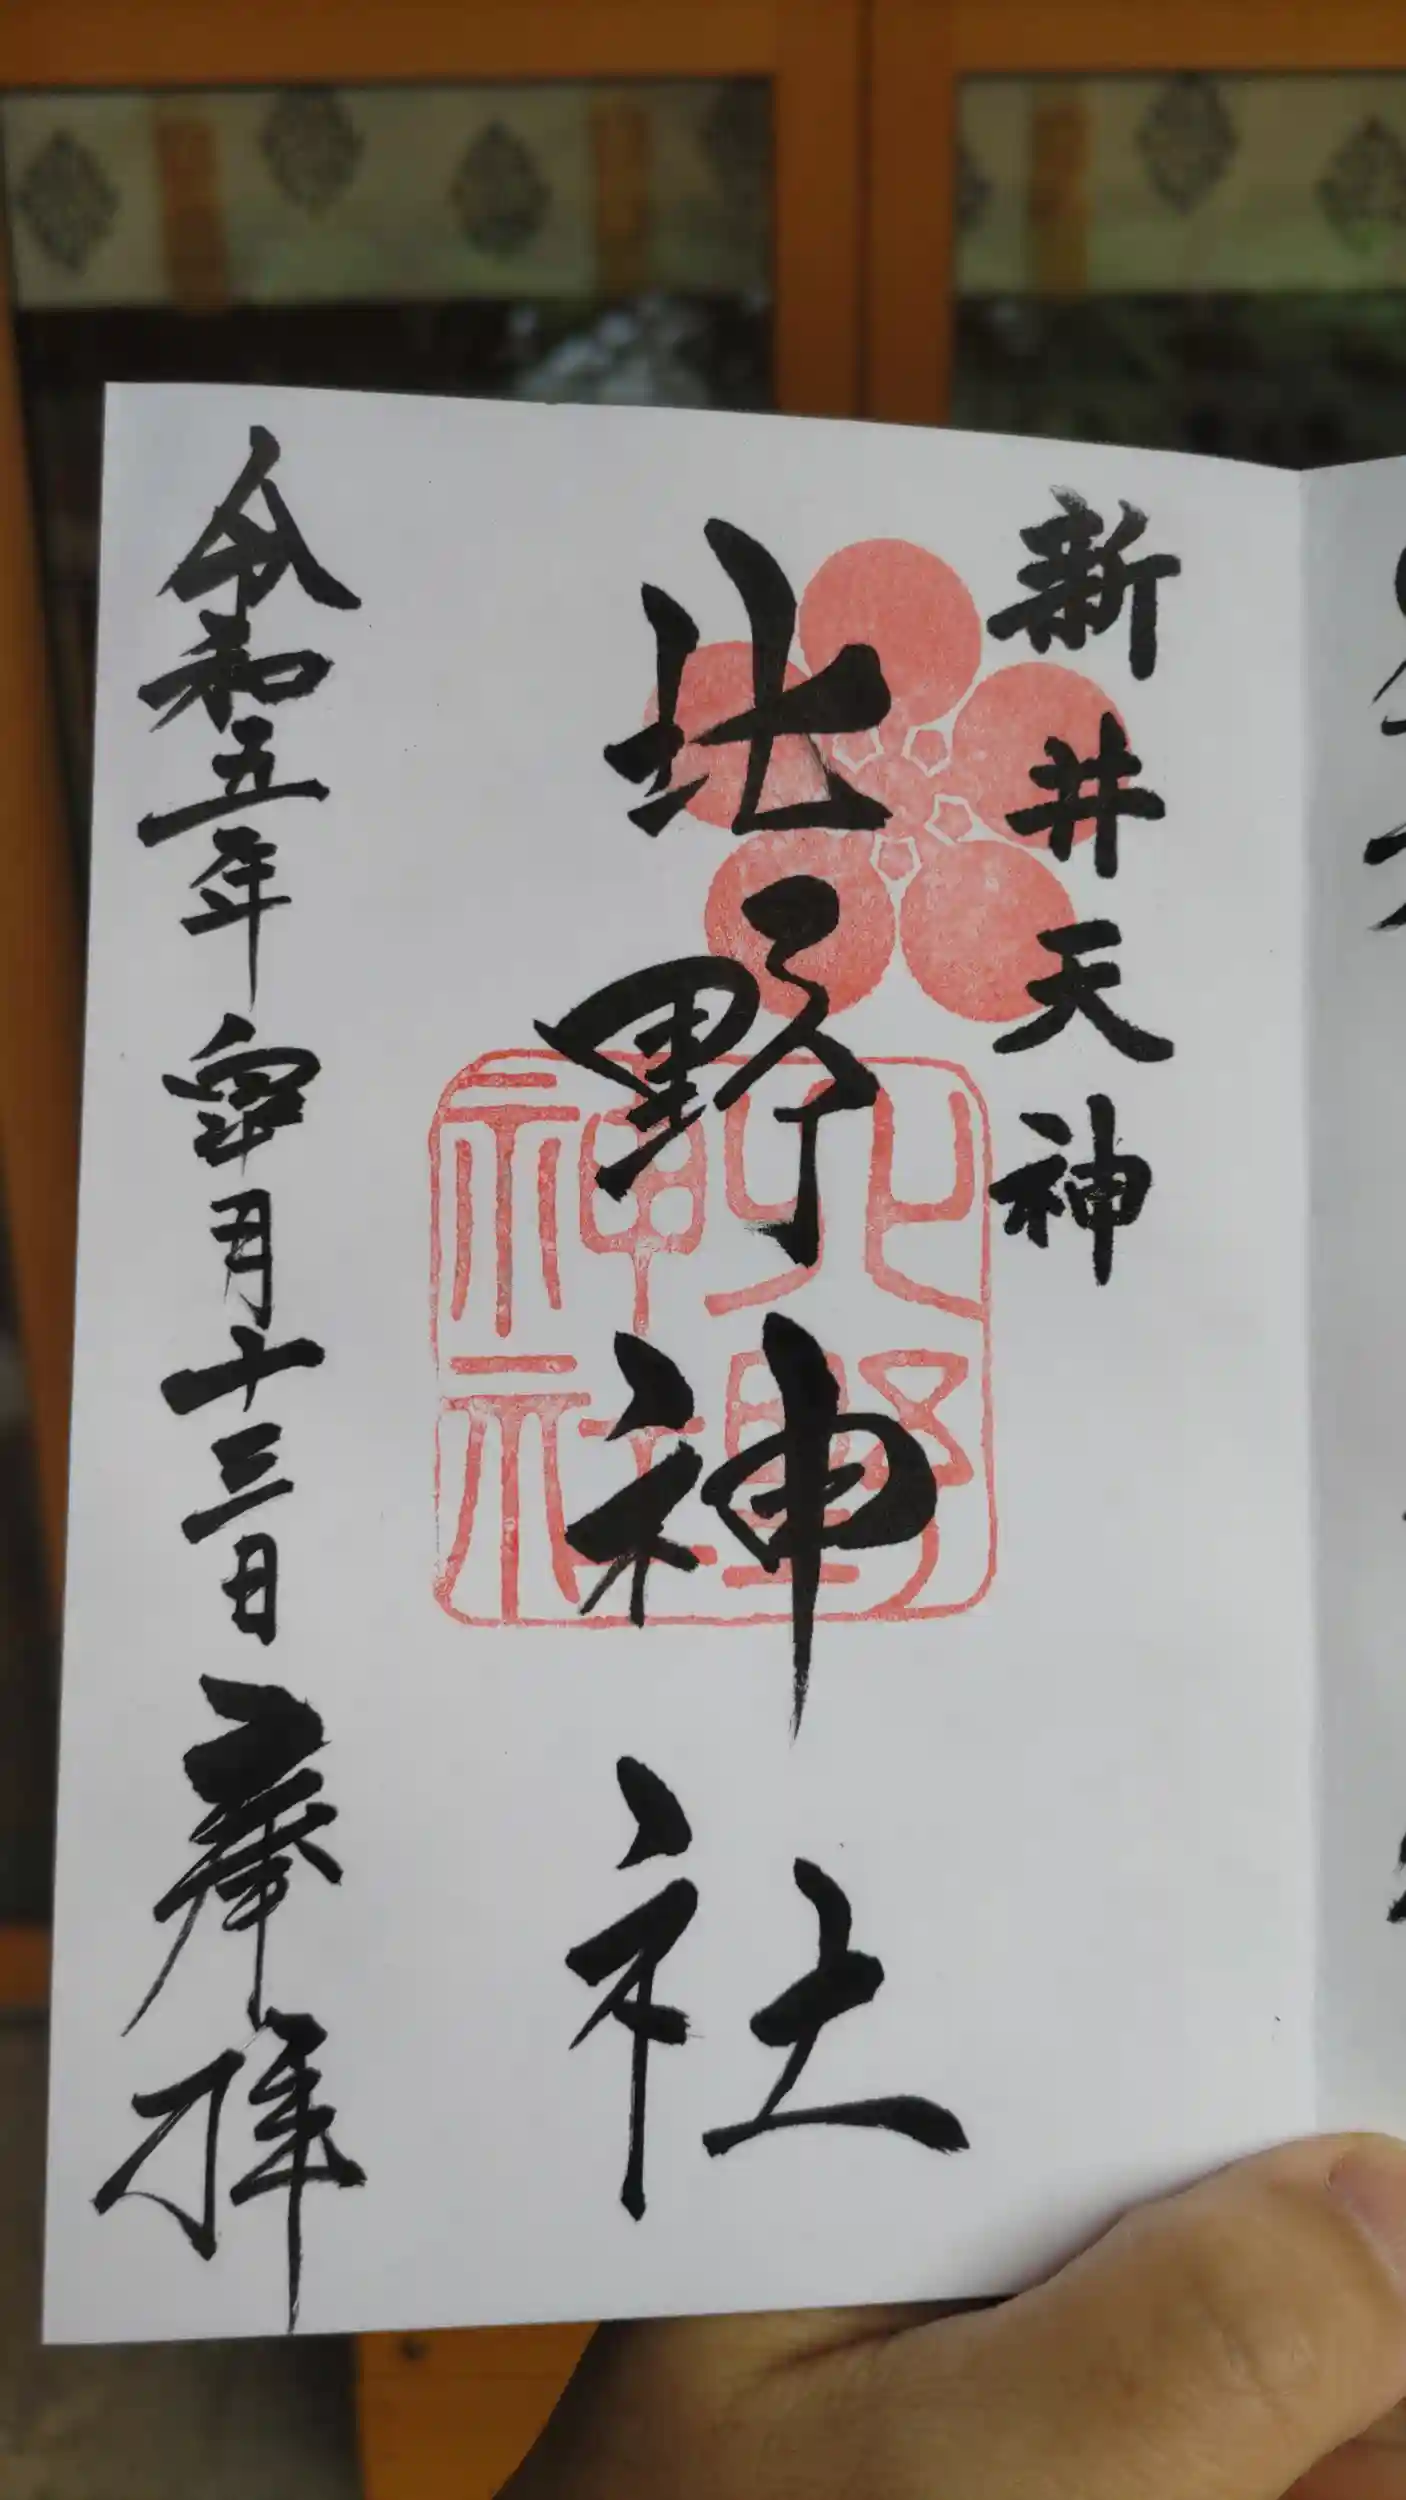 新井天神
北野神社
北野
神社
令和五年皐月十三日奉拝